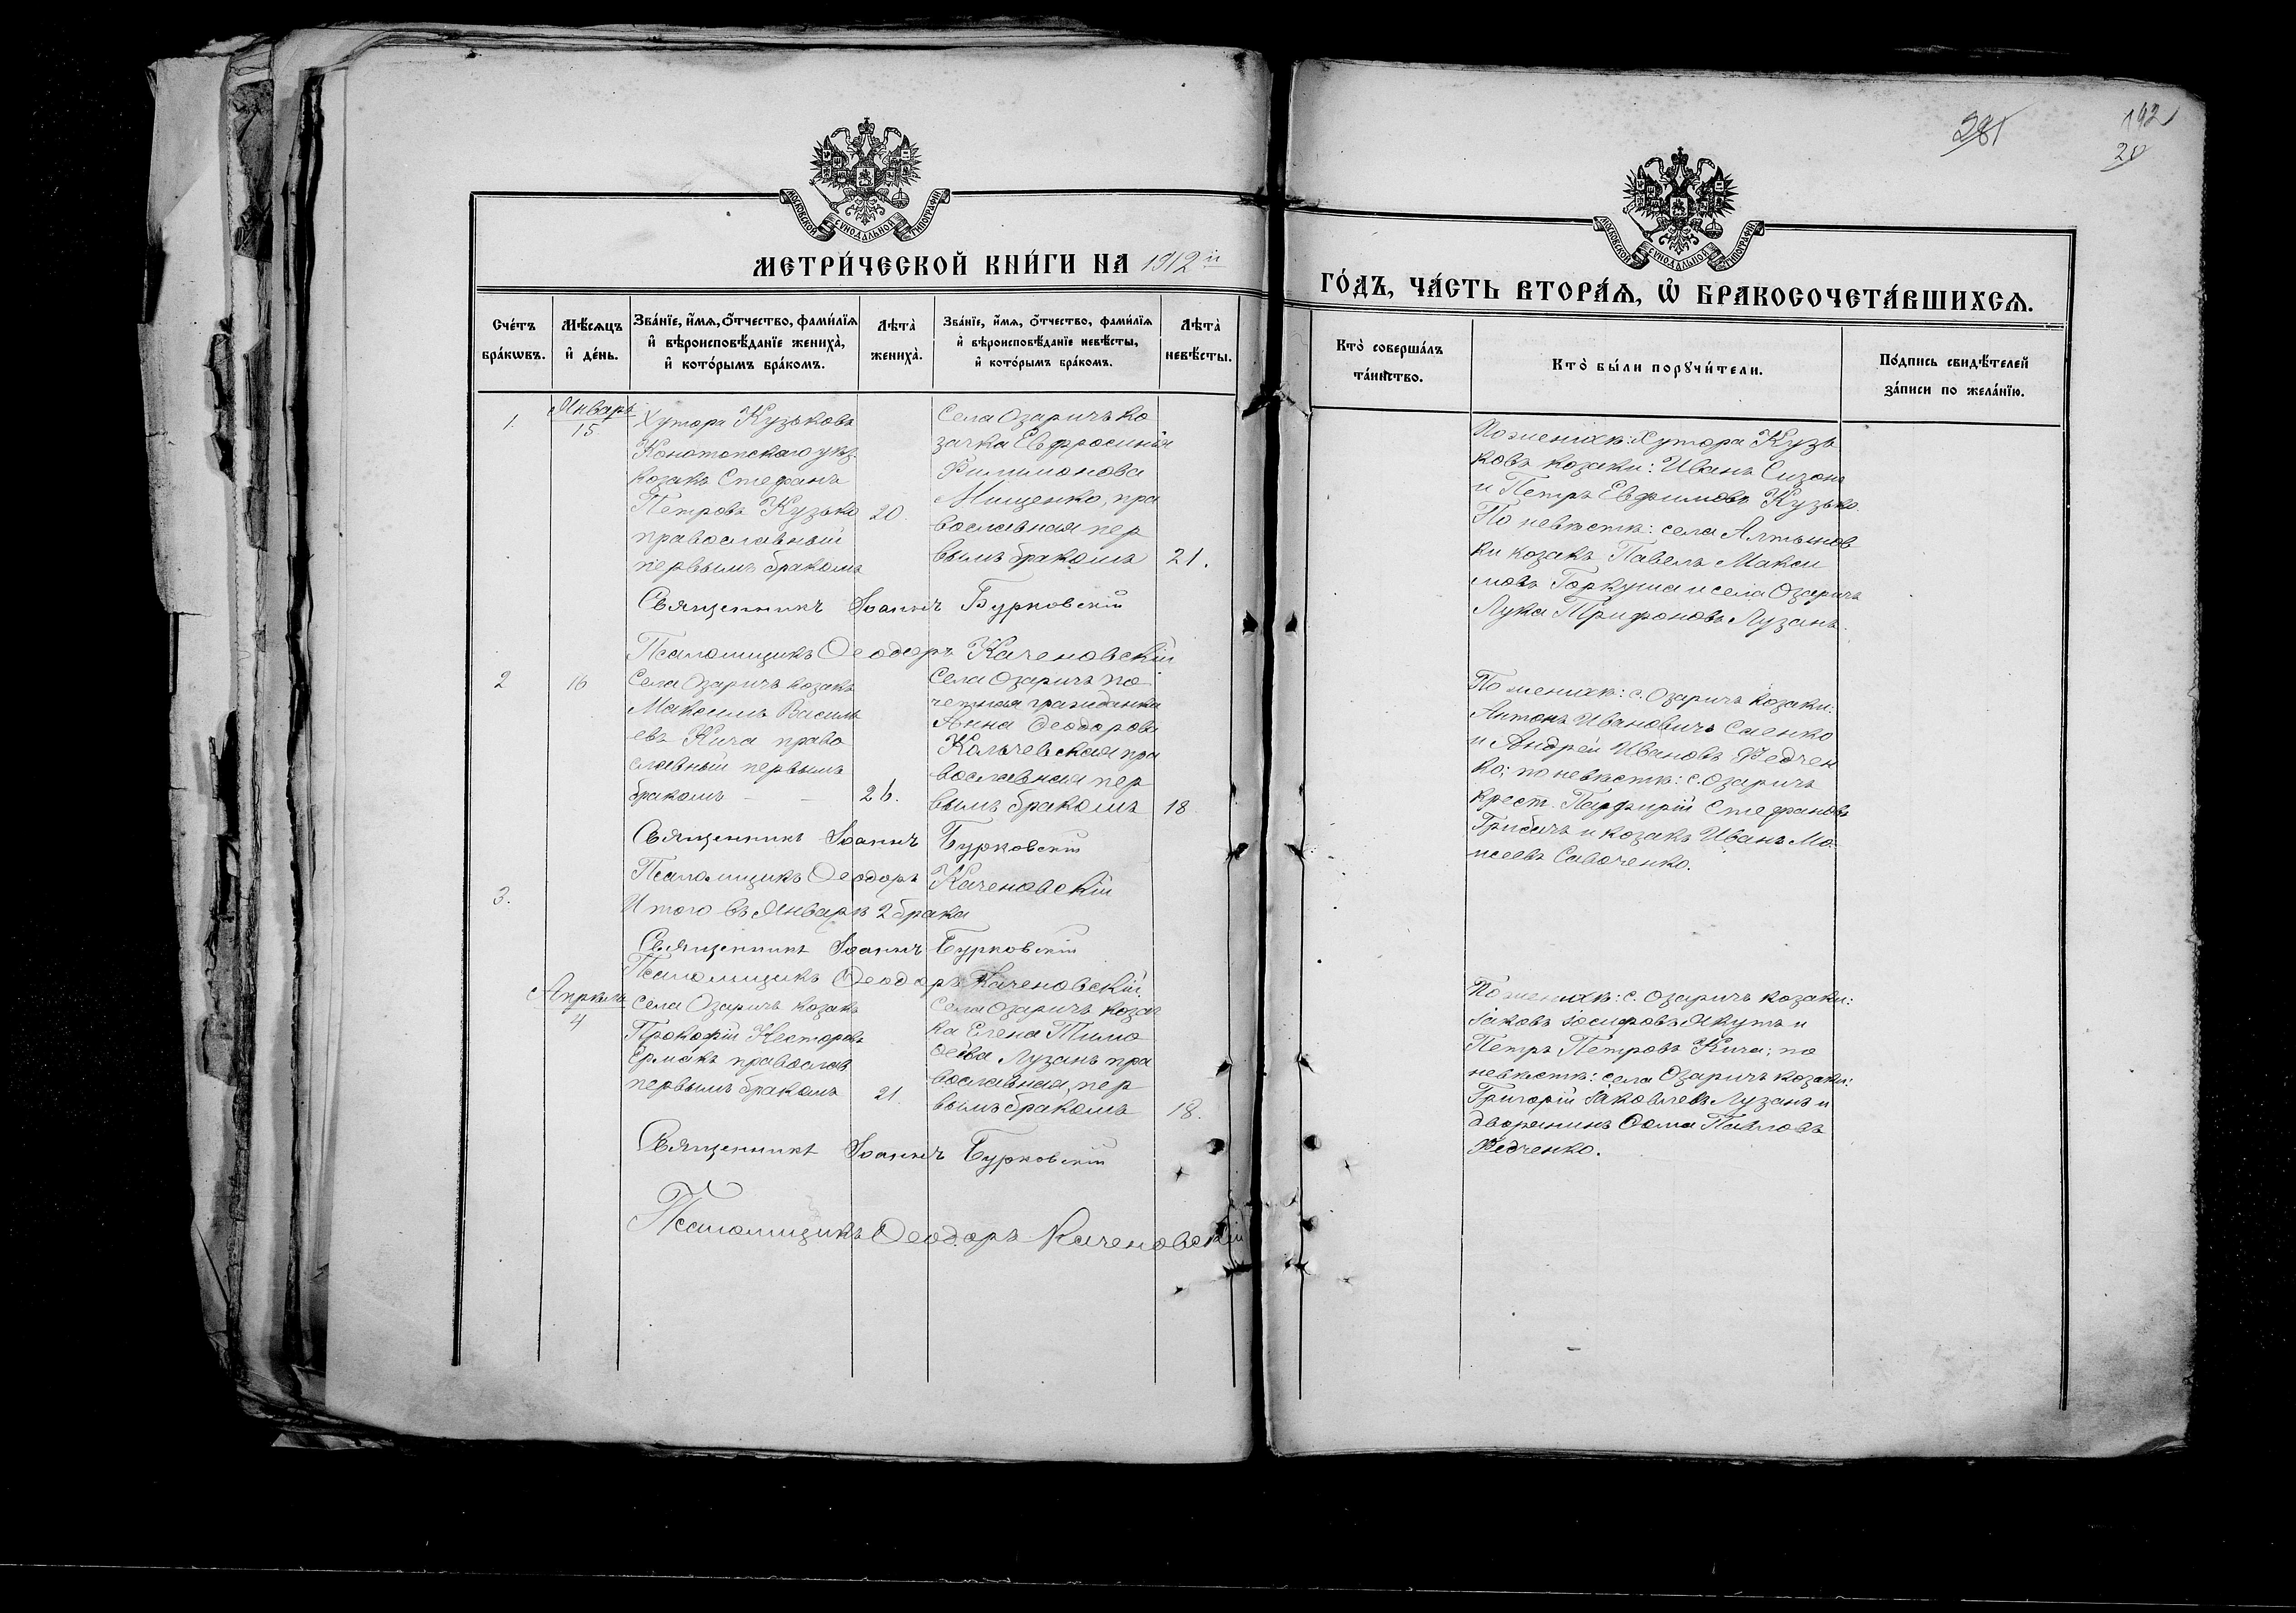 281
192
20
МОСКОВСКОЙ СѴНОДАЛЬНОЙ ТИПОГРАФІИ
МОСКОВСКОЙ СѴНОДАЛЬНОЙ ТИПОГРАФІИ
МЕТРИ́ЧЕСКОЙ КНИ́ГИ НА 1912 й
ГО́ДЪ, ЧА́СТЬ ВТОРА́Ѧ, Ѡ҆ БРАКОСОЧЕТА́ВШИХСѦ.
Сче́тъ бра́кѡвъ.
Мѣ́сѧцъ и҆ де́нь.
Зва́нїе, и҆́мѧ, о҆́тчество, фамилїѧ и҆ вѣроисповѣ́данїе жениха̀, и҆ кото́рымъ бра́комъ.
Лѣта̀ жениха̀.
Зва́нїе, и҆́мѧ, о҆́тчество, фамилїѧ и҆ вѣроисповѣ́данїе невѣ́сты, и҆ кото́рымъ бра́комъ.
Лѣта̀ невѣ́сты.
Кто̀ соверша́лъ та́инство.
Кто̀ бы́ли порꙋчи́тели.
По́дпись свидѣ́телей за́писи по жела́нїю.
1.
Январь
15
Хутора Кузьковъ
Конотопскаго уѣз.
козакъ Стефанъ
Петровъ Кузько
православный
первымъ бракомъ
20.
Села Озаричъ ко
зачка Евфросинія
Филимонова
Мищенко, пра
вославная пер
вымъ бракомъ
21.
По женихѣ: Хутора Кузь
ковъ козаки: Иванъ Сизонъ
и Петръ Евфимовъ Кузько.
По невѣстѣ: села Алтынов
ки козакъ Павелъ Макси
мовъ Горкуша и села Озаричъ
Лука Трифоновъ Лузанъ.
Священникъ Іоаннъ Бурковскій
Псаломщикъ Ѳеодоръ Каченовскій
2
16
Села Озаричъ козакъ
Максимъ Василь
евъ Кича право
славный первымъ
бракомъ – –
26.
Села Озаричъ по
четная гражданка
Анна Ѳеодорова
Кальчевская пра
вославная пер
вымъ бракомъ
18
По женихѣ: с. Озаричъ козаки:
Антонъ Ивановичъ Саенко
и Андрей Ивановъ Федчен
ко; по невѣстѣ: с. Озаричъ
крест. Парфирій Стефановъ
Грибачъ и козакъ Иванъ Мо
исеевъ Савоченко.
Священникъ Іоаннъ Бурковскій
Псаломщикъ Ѳеодоръ Каченовскій
3.
Итого въ Январѣ 2 брака
Священникъ Іоаннъ Бурковскій
Псаломщикъ Ѳеодоръ Каченовскій.
Апрѣль
4
Села Озаричъ козакъ
Прокофій Несторовъ
Ермакъ православ
первымъ бракомъ
21.
Села Озаричъ козач
ка Елена Тимо
ѳеева Лузанъ пра
вославная, пер
вымъ бракомъ
18.
По женихѣ: с. Озаричъ козаки:
Іаковъ Іосифовъ Якутъ и
Петръ Петровъ Кича; по
невѣстѣ: села Озаричъ козаки:
Григорій Іаковлевъ Лузанъ и
дворянинъ Ѳома Павловъ
Федченко.
Священникъ Іоаннъ Бурковскій
Псаломщикъ Ѳеодоръ Каченовскій